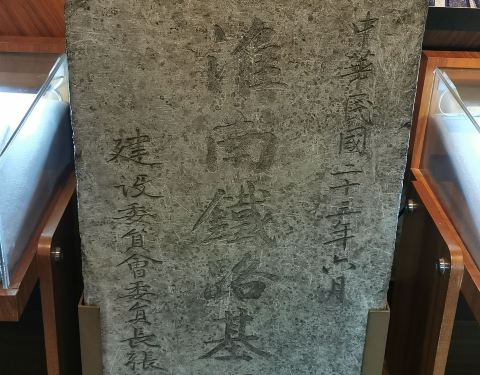 中華民國二十三年六月
淮南鐵路基
建設委員會委員長張